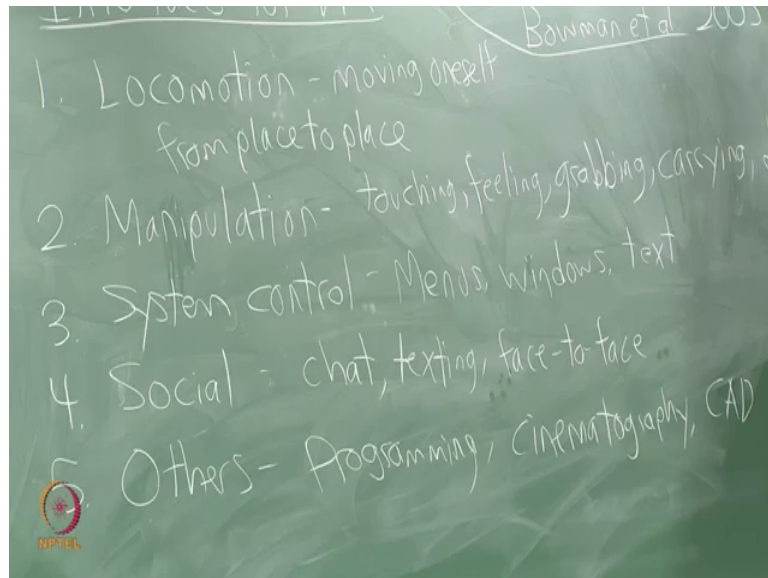 Bowman et al 2005
1. Locomotion - moving oneself
from place to place
2. Manipulation - touching, feeling, grabbing, carrying,
3. System control - Menus, windows, text
4. Social - chat, texting, face-to-face
5. Others - Programming, cinematography, CAD
NPTEL